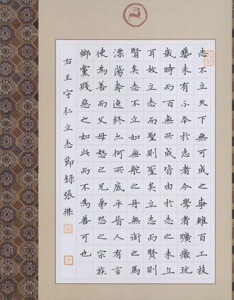 志不立天下無可成之事雖百工技
藝未有不本於志者今學者曠玩
歲時而百無所成皆由於志之未立
耳故立志而聖則聖矣立志而賢則
賢矣志不立如無舵之舟無銜之馬
漂蕩奔逸終亦何所底乎昔人有言
使為善而父母怒之兄弟怨之宗族
鄉黨賤惡之如此而不為善可也
右王守仁立志節錄張傑